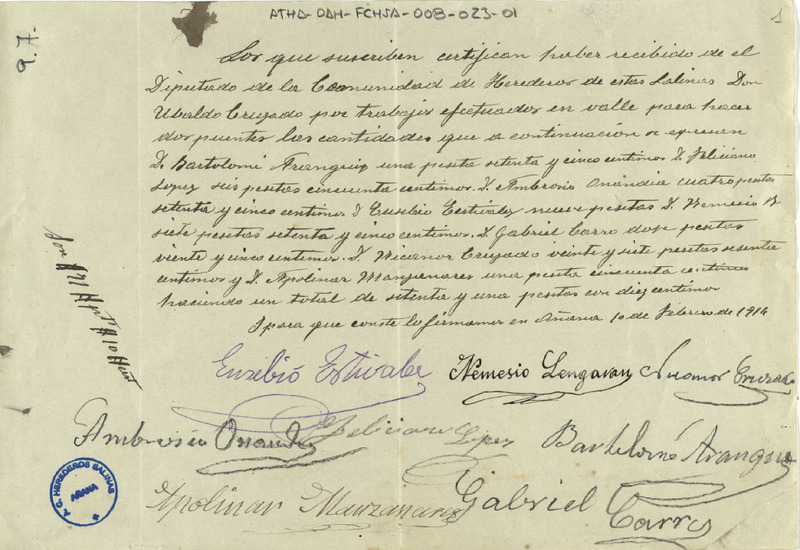 ATHA-DAH-FCHSA-008-023-01
1
9.7.
Los que suscriben certifican haber recibido de el
Diputado de la Comunidad de Herederos de estas Salinas Don
Ubaldo Cruzado por trabajos efectuados en valle para hacer
dos puentes las cantidades que a continuación se expresan
D. Bartolomé Aranguiz una peseta setenta y cinco centimos D. Feliciano
Lopez seis pesetas cincuenta centimos. D. Ambrosio Onandia cuatro pesetas
setenta y cinco centimos D Eusebio Estivalez nueve pesetas D. Nemesio
siete pesetas setenta y cinco centimos. D. Gabriel Carro doce pesetas
viente y cinco centimos. D. Nicanor Cruzado veinte y siete pesetas sesenta
centimos y D. Apolinar Manzanares una peseta cincuenta centimos
haciendo un total de setenta y una pesetas con diez centimos
Y para que conste lo firmamos en Añana 10 de Febrero de 1914
Son #71# pts #10# 
Eusebio Estivalez
Nemesio
Nicanor Cruzado
Ambrosio Onandia
Feliciano Lopez
Bartolomé Aranguiz
Apolinar Manzanares
Gabriel
Carro
A. C. HEREDEROS SALINAS
AÑANA